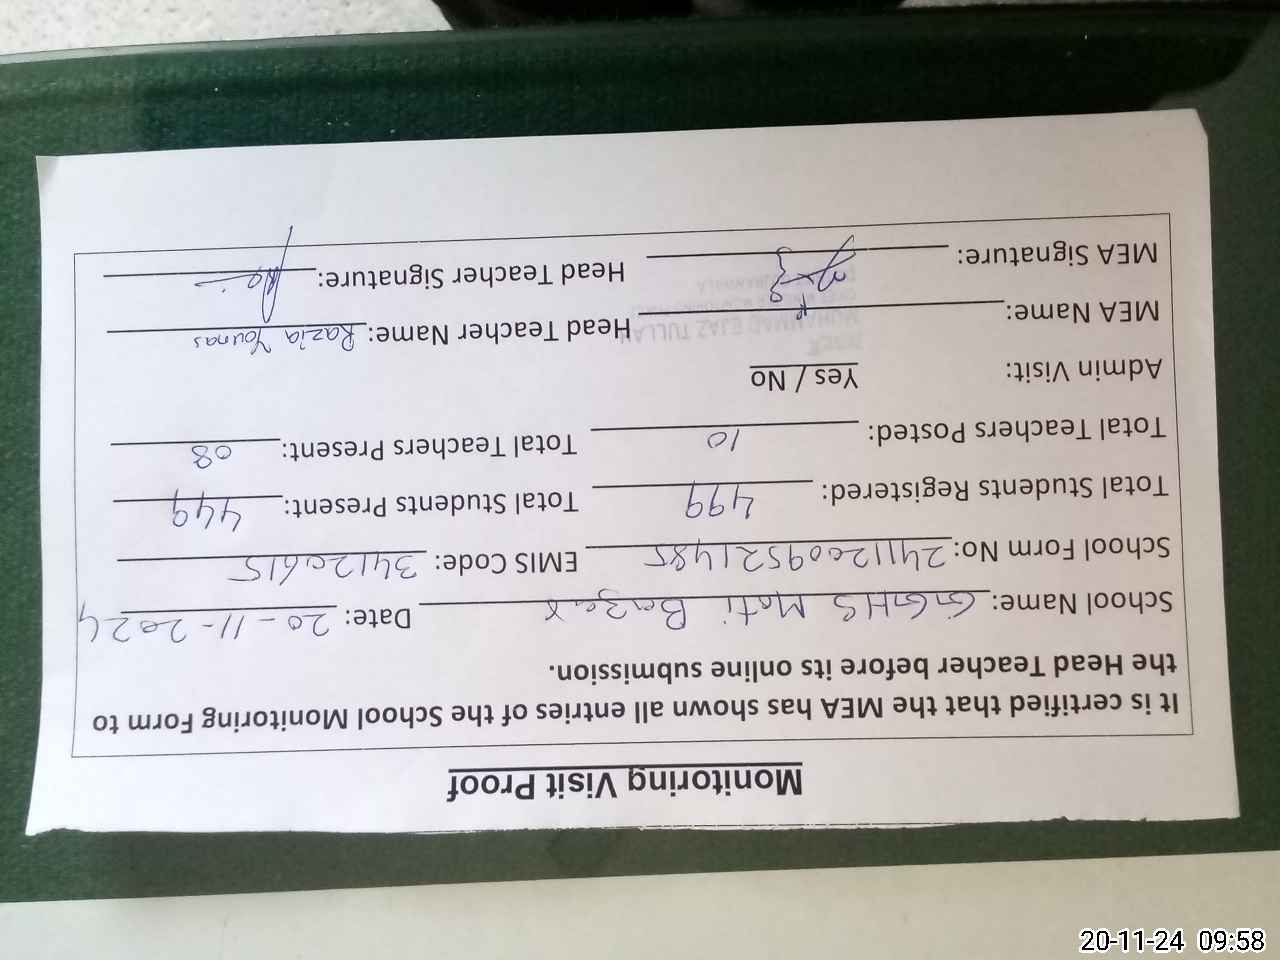 Monitoring Visit Proof
It is certified that the MEA has shown all entries of the School Monitoring Form to
the Head Teacher before its online submission.
School Name: GGHS Moti Bazar Date: 20-11-2024
School Form No: 24112009521485 EMIS Code: 34120615
Total Students Registered: 499 Total Students Present: 449
Total Teachers Posted: 10 Total Teachers Present: 08
Admin Visit: Yes / No
MEA Name: Head Teacher Name: Razia Younas
MEA Signature: Head Teacher Signature:
MUHAMMAD EJAZ TULLAH
20-11-24 09:58